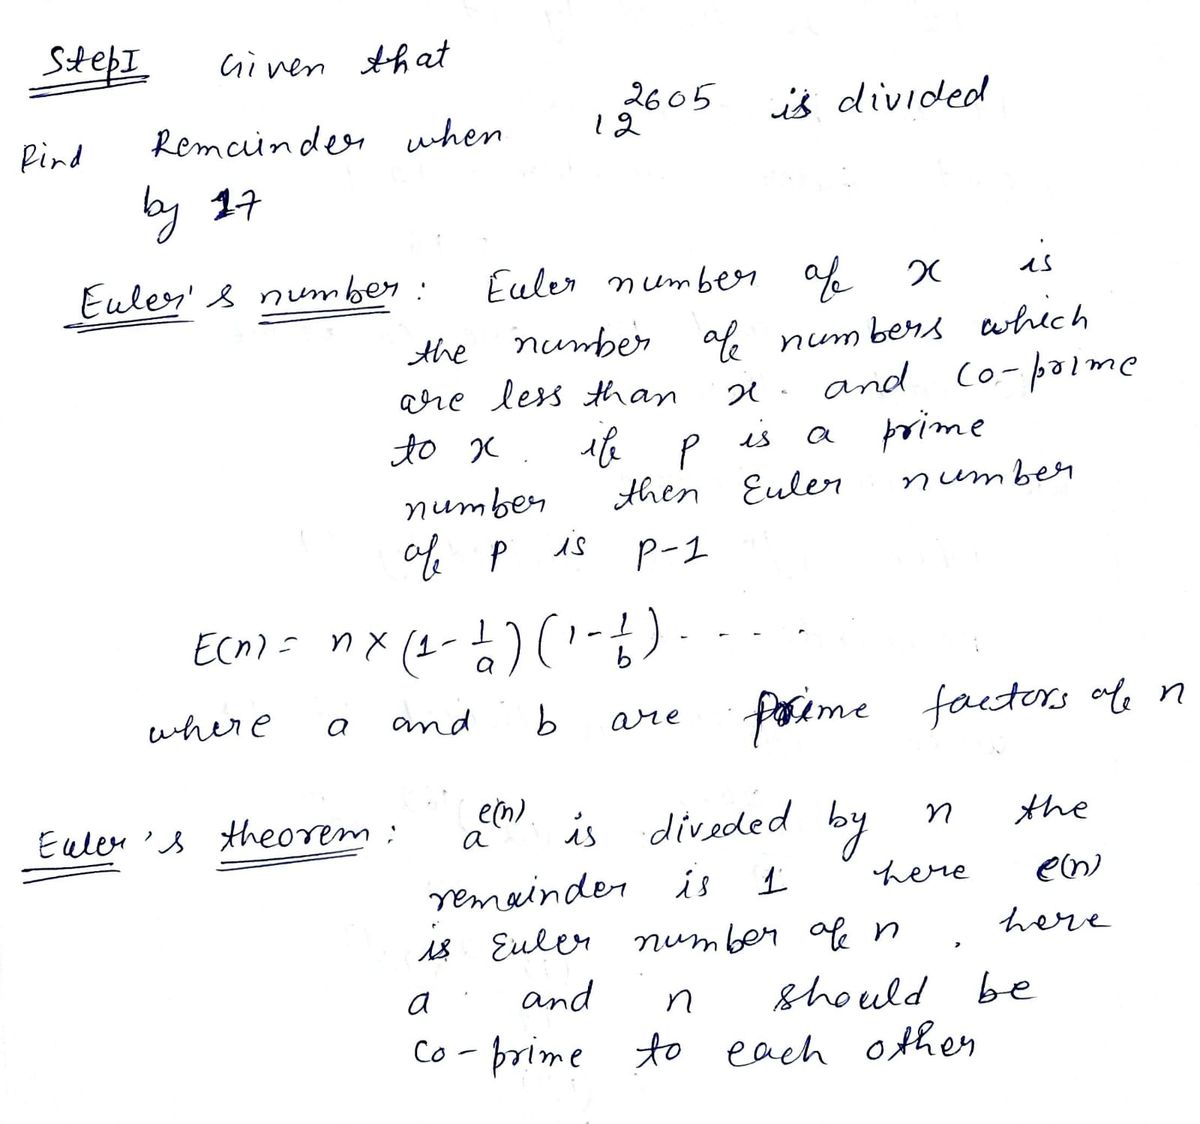 StepI Given that
Find Remainder when 12^2605 is divided
by 17
Euler's number: Euler number of x is
the number of numbers which
are less than x. and co-prime
to x. if p is a prime
number then Euler number
of p is p-1
E(n) = n × (1-1/a)(1-1/b)-----
where a and b are prime factors of n
Euler's theorem: a^e(n) is diveded by n the
remainder is 1 here e(n)
is Euler number of n, here
a and n should be
co-prime to each other